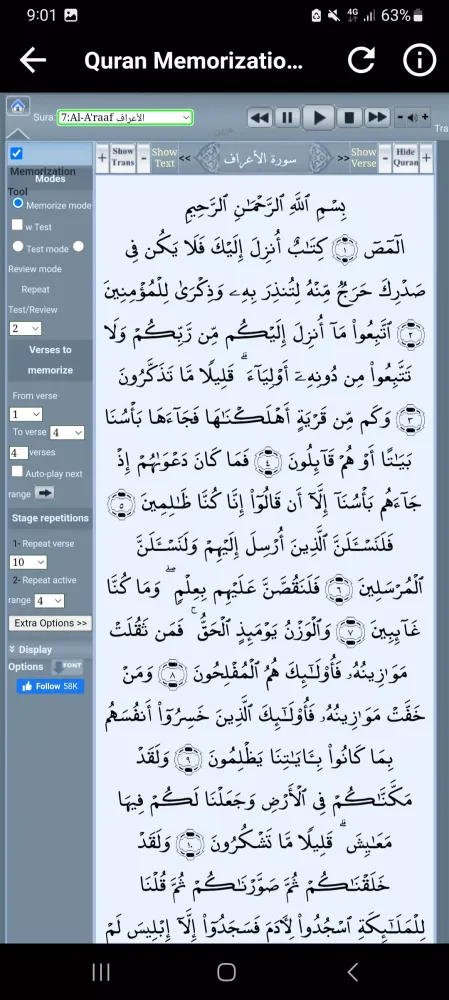 9:01 4G 63%
Quran Memorizatio...
Sura: 7:Al-A'raaf الأعراف
- +
Tra
Memorization Tool
Modes
Memorize mode
w Test
Test mode
Review mode
Repeat
Test/Review
2
Verses to memorize
From verse
1
To verse 4
4 verses
Auto-play next
range
Stage repetitions
1- Repeat verse
10
2- Repeat active
range 4
Extra Options >>
Display
Options FONT
Follow 58K
+ Show Trans - Show Text << سورة الأعراف >> Show Verse - Hide Quran +
بِسْمِ ٱللَّهِ ٱلرَّحْمَٰنِ ٱلرَّحِيمِ
الٓمٓصٓ ﴿١﴾ كِتَٰبٌ أُنزِلَ إِلَيْكَ فَلَا يَكُن فِى
صَدْرِكَ حَرَجٌ مِّنْهُ لِتُنذِرَ بِهِۦ وَذِكْرَىٰ لِلْمُؤْمِنِينَ
﴿٢﴾ ٱتَّبِعُوا۟ مَآ أُنزِلَ إِلَيْكُم مِّن رَّبِّكُمْ وَلَا
تَتَّبِعُوا۟ مِن دُونِهِۦٓ أَوْلِيَآءَ ۗ قَلِيلًا مَّا تَذَكَّرُونَ
﴿٣﴾ وَكَم مِّن قَرْيَةٍ أَهْلَكْنَٰهَا فَجَآءَهَا بَأْسُنَا
بَيَٰتًا أَوْ هُمْ قَآئِلُونَ ﴿٤﴾ فَمَا كَانَ دَعْوَىٰهُمْ إِذْ
جَآءَهُم بَأْسُنَآ إِلَّآ أَن قَالُوٓا۟ إِنَّا كُنَّا ظَٰلِمِينَ ﴿٥﴾
فَلَنَسْـَٔلَنَّ ٱلَّذِينَ أُرْسِلَ إِلَيْهِمْ وَلَنَسْـَٔلَنَّ
ٱلْمُرْسَلِينَ ﴿٦﴾ فَلَنَقُصَّنَّ عَلَيْهِم بِعِلْمٍ ۖ وَمَا كُنَّا
غَآئِبِينَ ﴿٧﴾ وَٱلْوَزْنُ يَوْمَئِذٍ ٱلْحَقُّ ۚ فَمَن ثَقُلَتْ
مَوَٰزِينُهُۥ فَأُو۟لَٰٓئِكَ هُمُ ٱلْمُفْلِحُونَ ﴿٨﴾ وَمَنْ
خَفَّتْ مَوَٰزِينُهُۥ فَأُو۟لَٰٓئِكَ ٱلَّذِينَ خَسِرُوٓا۟ أَنفُسَهُم
بِمَا كَانُوا۟ بِـَٔايَٰتِنَا يَظْلِمُونَ ﴿٩﴾ وَلَقَدْ
مَكَّنَّٰكُمْ فِى ٱلْأَرْضِ وَجَعَلْنَا لَكُمْ فِيهَا
مَعَٰيِشَ ۗ قَلِيلًا مَّا تَشْكُرُونَ ﴿١٠﴾ وَلَقَدْ
خَلَقْنَٰكُمْ ثُمَّ صَوَّرْنَٰكُمْ ثُمَّ قُلْنَا
لِلْمَلَٰٓئِكَةِ ٱسْجُدُوا۟ لِـَٔادَمَ فَسَجَدُوٓا۟ إِلَّآ إِبْلِيسَ لَمْ